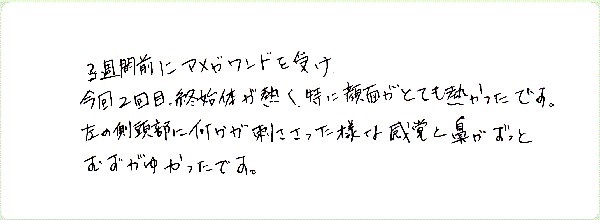 3週間前にアメガワンドを受け
今回2回目、終始体が熱く、特に顔面がとても熱かったです。
左の側頭部に何かが刺さった様な感覚と鼻がずっと
むずがゆかったです。